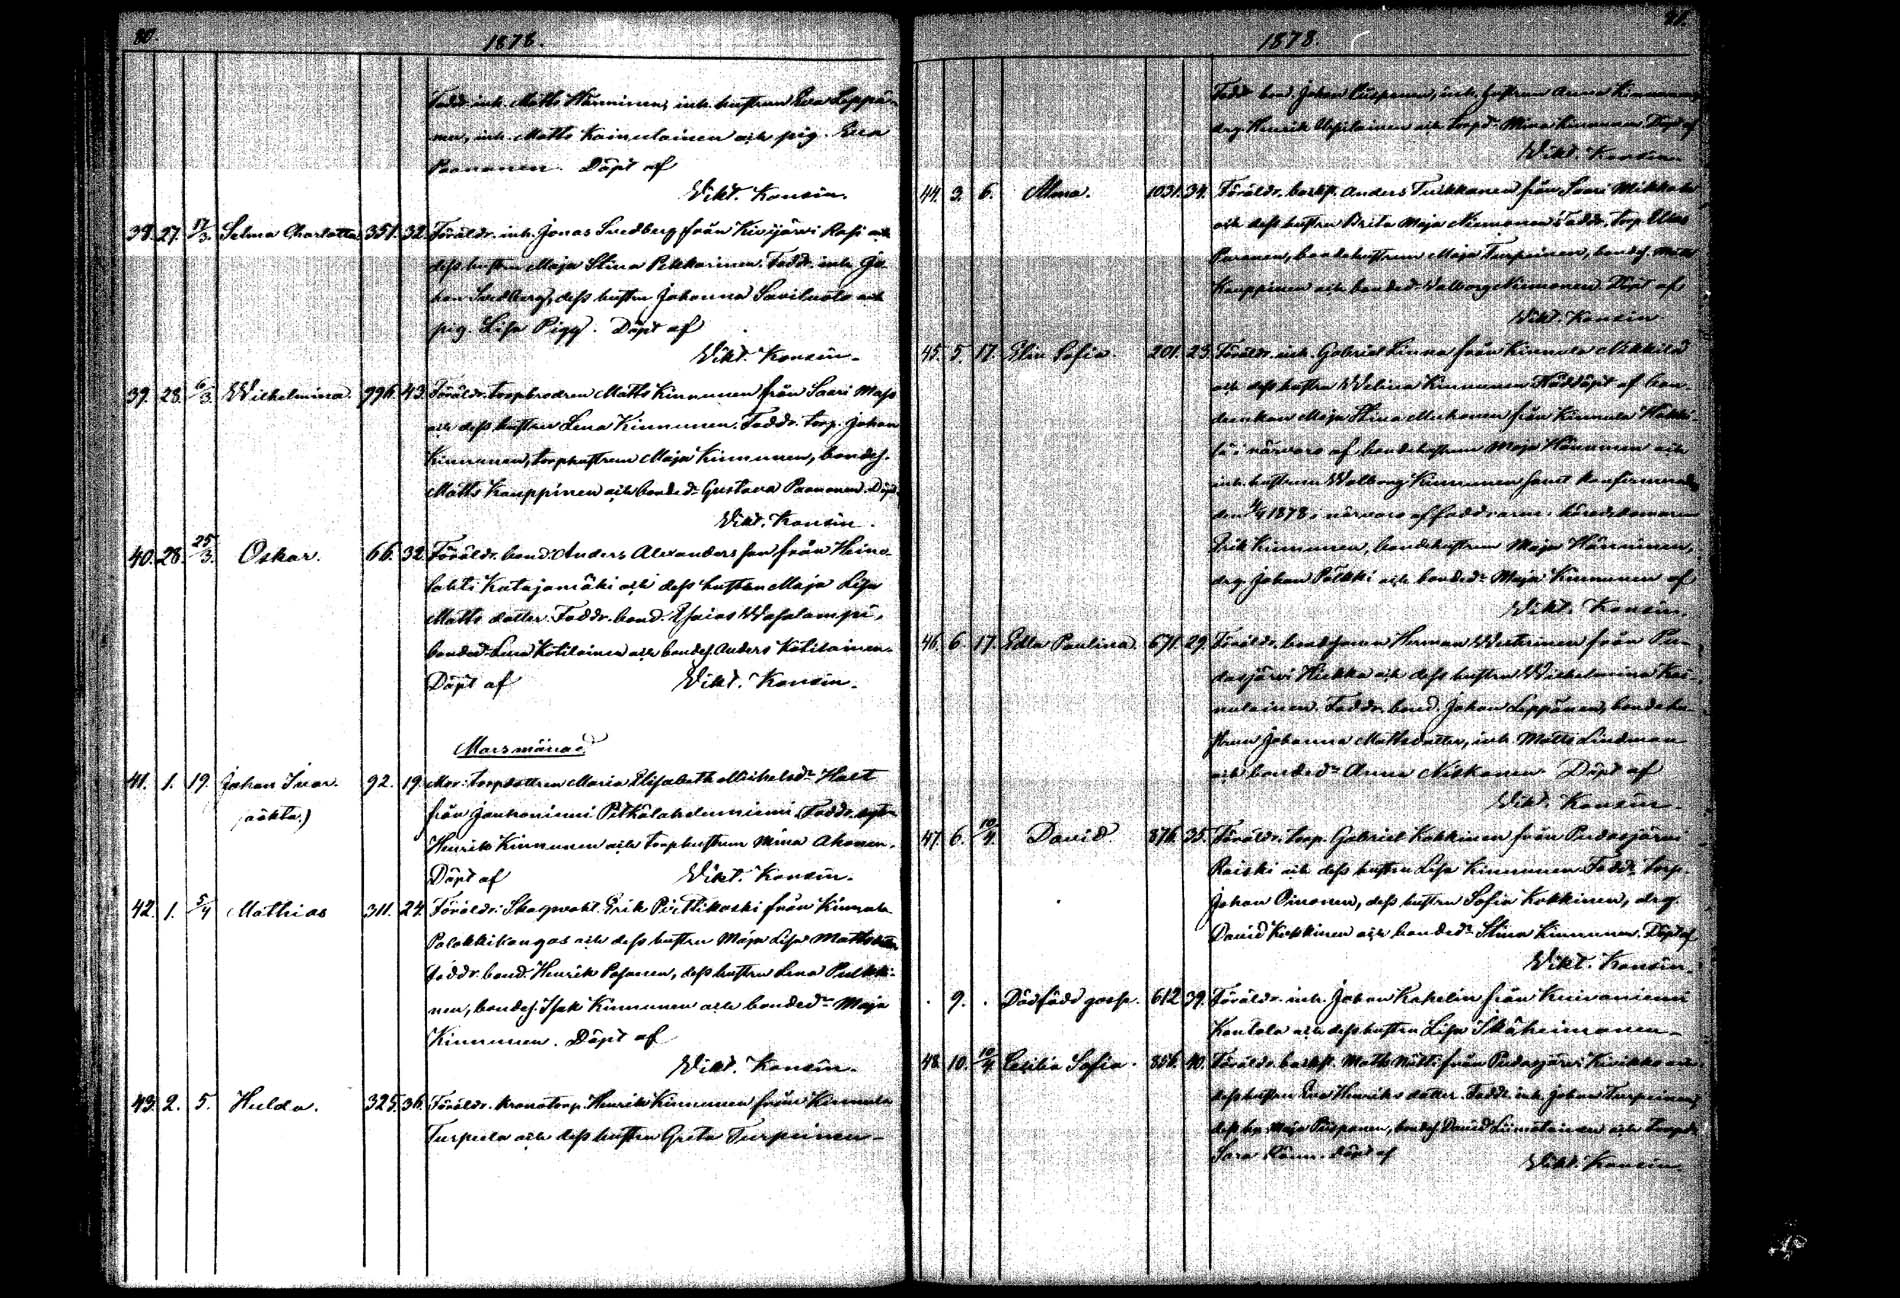 80.
1878.
Fadd. inh. Matts Hänninen, inh. hustrun Eva Leppä-
nen, inh. Matts Kainulainen och pig. Eva
Paananen. Döpt af
Vikt. Konsin.
38. 27. 17/3. Selma Charlotta 351. 32. Föräldr. inh. Jonas Svedberg från Kivijärvi Rasi och
dess hustru Maja Stina Pekkarinen. Faddr. inh. Jo-
han Svedberg, dess hustru Johanna Saviluoto och
pig. Lisa Pigg. Döpt af
Vikt. Konsin.
39. 28. 6/3. Wilhelmina. 996. 43. Föräldr. torpbrodren Matts Kinnunen från Saari Maso
och dess hustru Lena Kinnunen. Faddr. torp. Johan
Kinnunen, torphustrun Maja Kinnunen, bondes.
Matts Kauppinen och bonded. Gustava Paananen. Döpt
Vikt. Konsin.
40. 28. 25/3. Oskar. 66. 32. Föräldr. bond. Anders Alexandersson från Heino-
lahti Katajamäki och dess hustru Maja Lisa
Matts dotter. Faddr. bond. Esaias Wasalampi,
bonded. Lena Kotilainen och bondes. Anders Kotilainen.
Döpt af Vikt. Konsin.
Marsmånad
41. 1. 19. Johan Ivar. 92. 19. Mor: torpdottren Maria Elisabeth Michelsdr Holt
(oäkta.) från Jouhoniemi Pitkälahdenniemi. Faddr.
Henrik Kinnunen och torphustrun Mina Ahonen.
Döpt af Vikt. Konsin.
42. 1. 5/4 Mathias 311. 24. Föräldr. Skogvakt. Erik Piettikoski från Kinnula
Polakkikangas och dess hustru Maja Lisa Mattsdotter
Faddr. bond. Henrik Pasanen, dess hustru Lena Pulkki-
nen, bondes. Isak Kinnunen och bondedr Maja
Kinnunen. Döpt af
Vikt. Konsin.
43. 2. 5. Hulda. 325. 36. Föräldr. kronotorp. Henrik Kinnunen från Kinnula
Turpela och dess hustru Greta Turpeinen
81.
1878.
Fadd. bond. Johan Piispanen, inh. hustrun Anna Kinnunen,
drg. Henrik och torpdr Mina Kinnunen Döpt af
Vikt. Konsin
44. 3. 6. Alma. 1031. 34. Föräldr. Anders Turkkanen från Saari Mikkola
och dess hustru Brita Maja Niemonen Faddr. torp. Elias
Paranen, bondehustrun Maja Turpeinen, bondes. Matts
Kauppinen och bonded. Walborg Niemonen. Döpt af
Vikt. Konsin
45. 5. 17. Elin Sofia. 201. 23. Föräldr. inh. Gabriel Linna från Kinnula Mikkilä
och dess hustru Welina Kinnunen Nöddöpt af bon-
denskan Maja Stina Muhonen från Kinnula Häkki-
lä i närvaro af bondehustrun Maja Hänninen och
inh. hustrun Walborg Kinnunen samt konfirmerad
den 1/4 1878 i närvaro af faddrarne: häradsdomaren
Erik Kinnunen, bondehustrun Maja Hänninen,
drg. Johan Pölkki och bondedr Maja Kinnunen af
Vikt. Konsin.
46. 6. 17. Edla Paulina. 671. 29. Föräldr. bondsonen Herman Westerinen från Pu-
dasjärvi Hiekka och dess hustru Wilhelmina Kai-
nulainen. Faddr. bond. Johan Leppänen, bondehu-
strun Johanna Mattsdotter, inh. Matts Lindman
och bondedr Anna Niskanen. Döpt af
Vikt. Konsin.
47. 6. 10/4. David. 876. 35. Föräldr. torp. Gabriel Kokkinen från Pudasjärvi
Raiski och dess hustru Lisa Kinnunen Faddr. torp.
Johan Oinonen, dess hustru Sofia Kokkinen, drg.
David Kokkinen och bondedr Stina Kinnunen. Döpt af
Vikt. Konsin.
. 9. . Dödfödd gosse. 612. 39. Föräldr. inh. Johan Kekelin från Knivaniemi
Kantola och dess hustru Lisa Ikäheimonen
48. 10. 10/4. Cecilia Sofia. 856. 40. Föräldr. Matts Mätti från Pudasjärvi Kivikko och
dess hustru Eva Henriksdotter. Faddr. inh. Johan Turpeinen,
dess hu. Maja Piispanen, bondes. David Liimatainen och torpdr
Sara Döpt af Vikt. Konsin